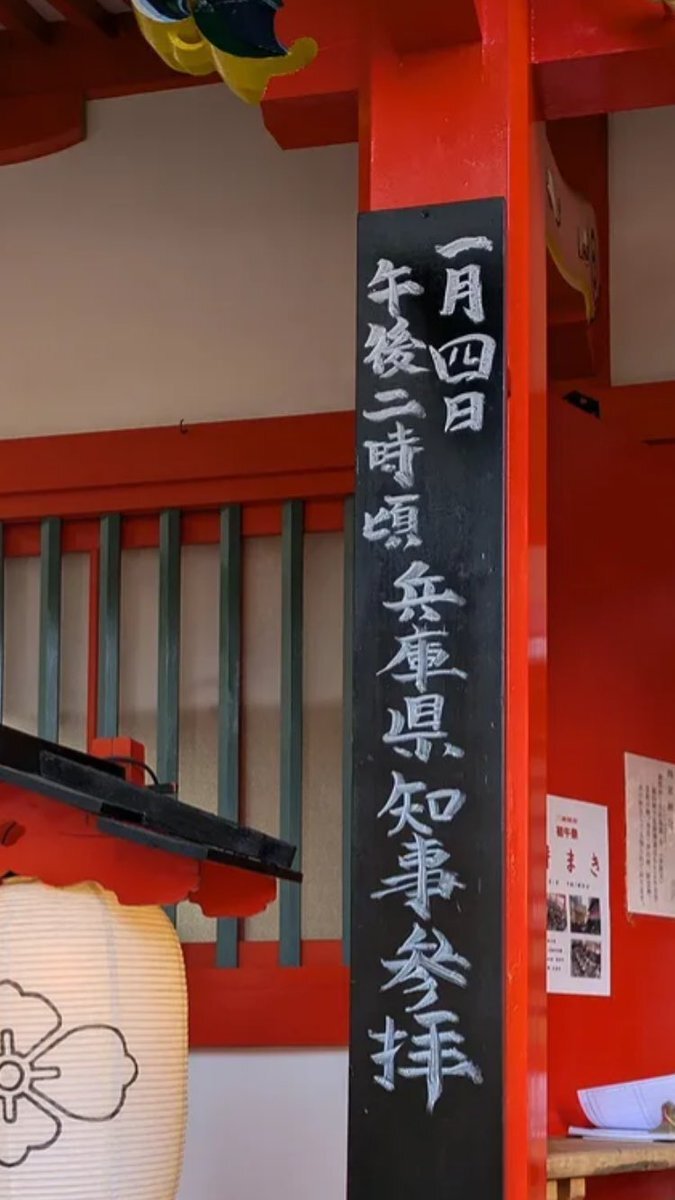 一月四日
午後二時頃
兵庫県知事参拝
初午祭
まき